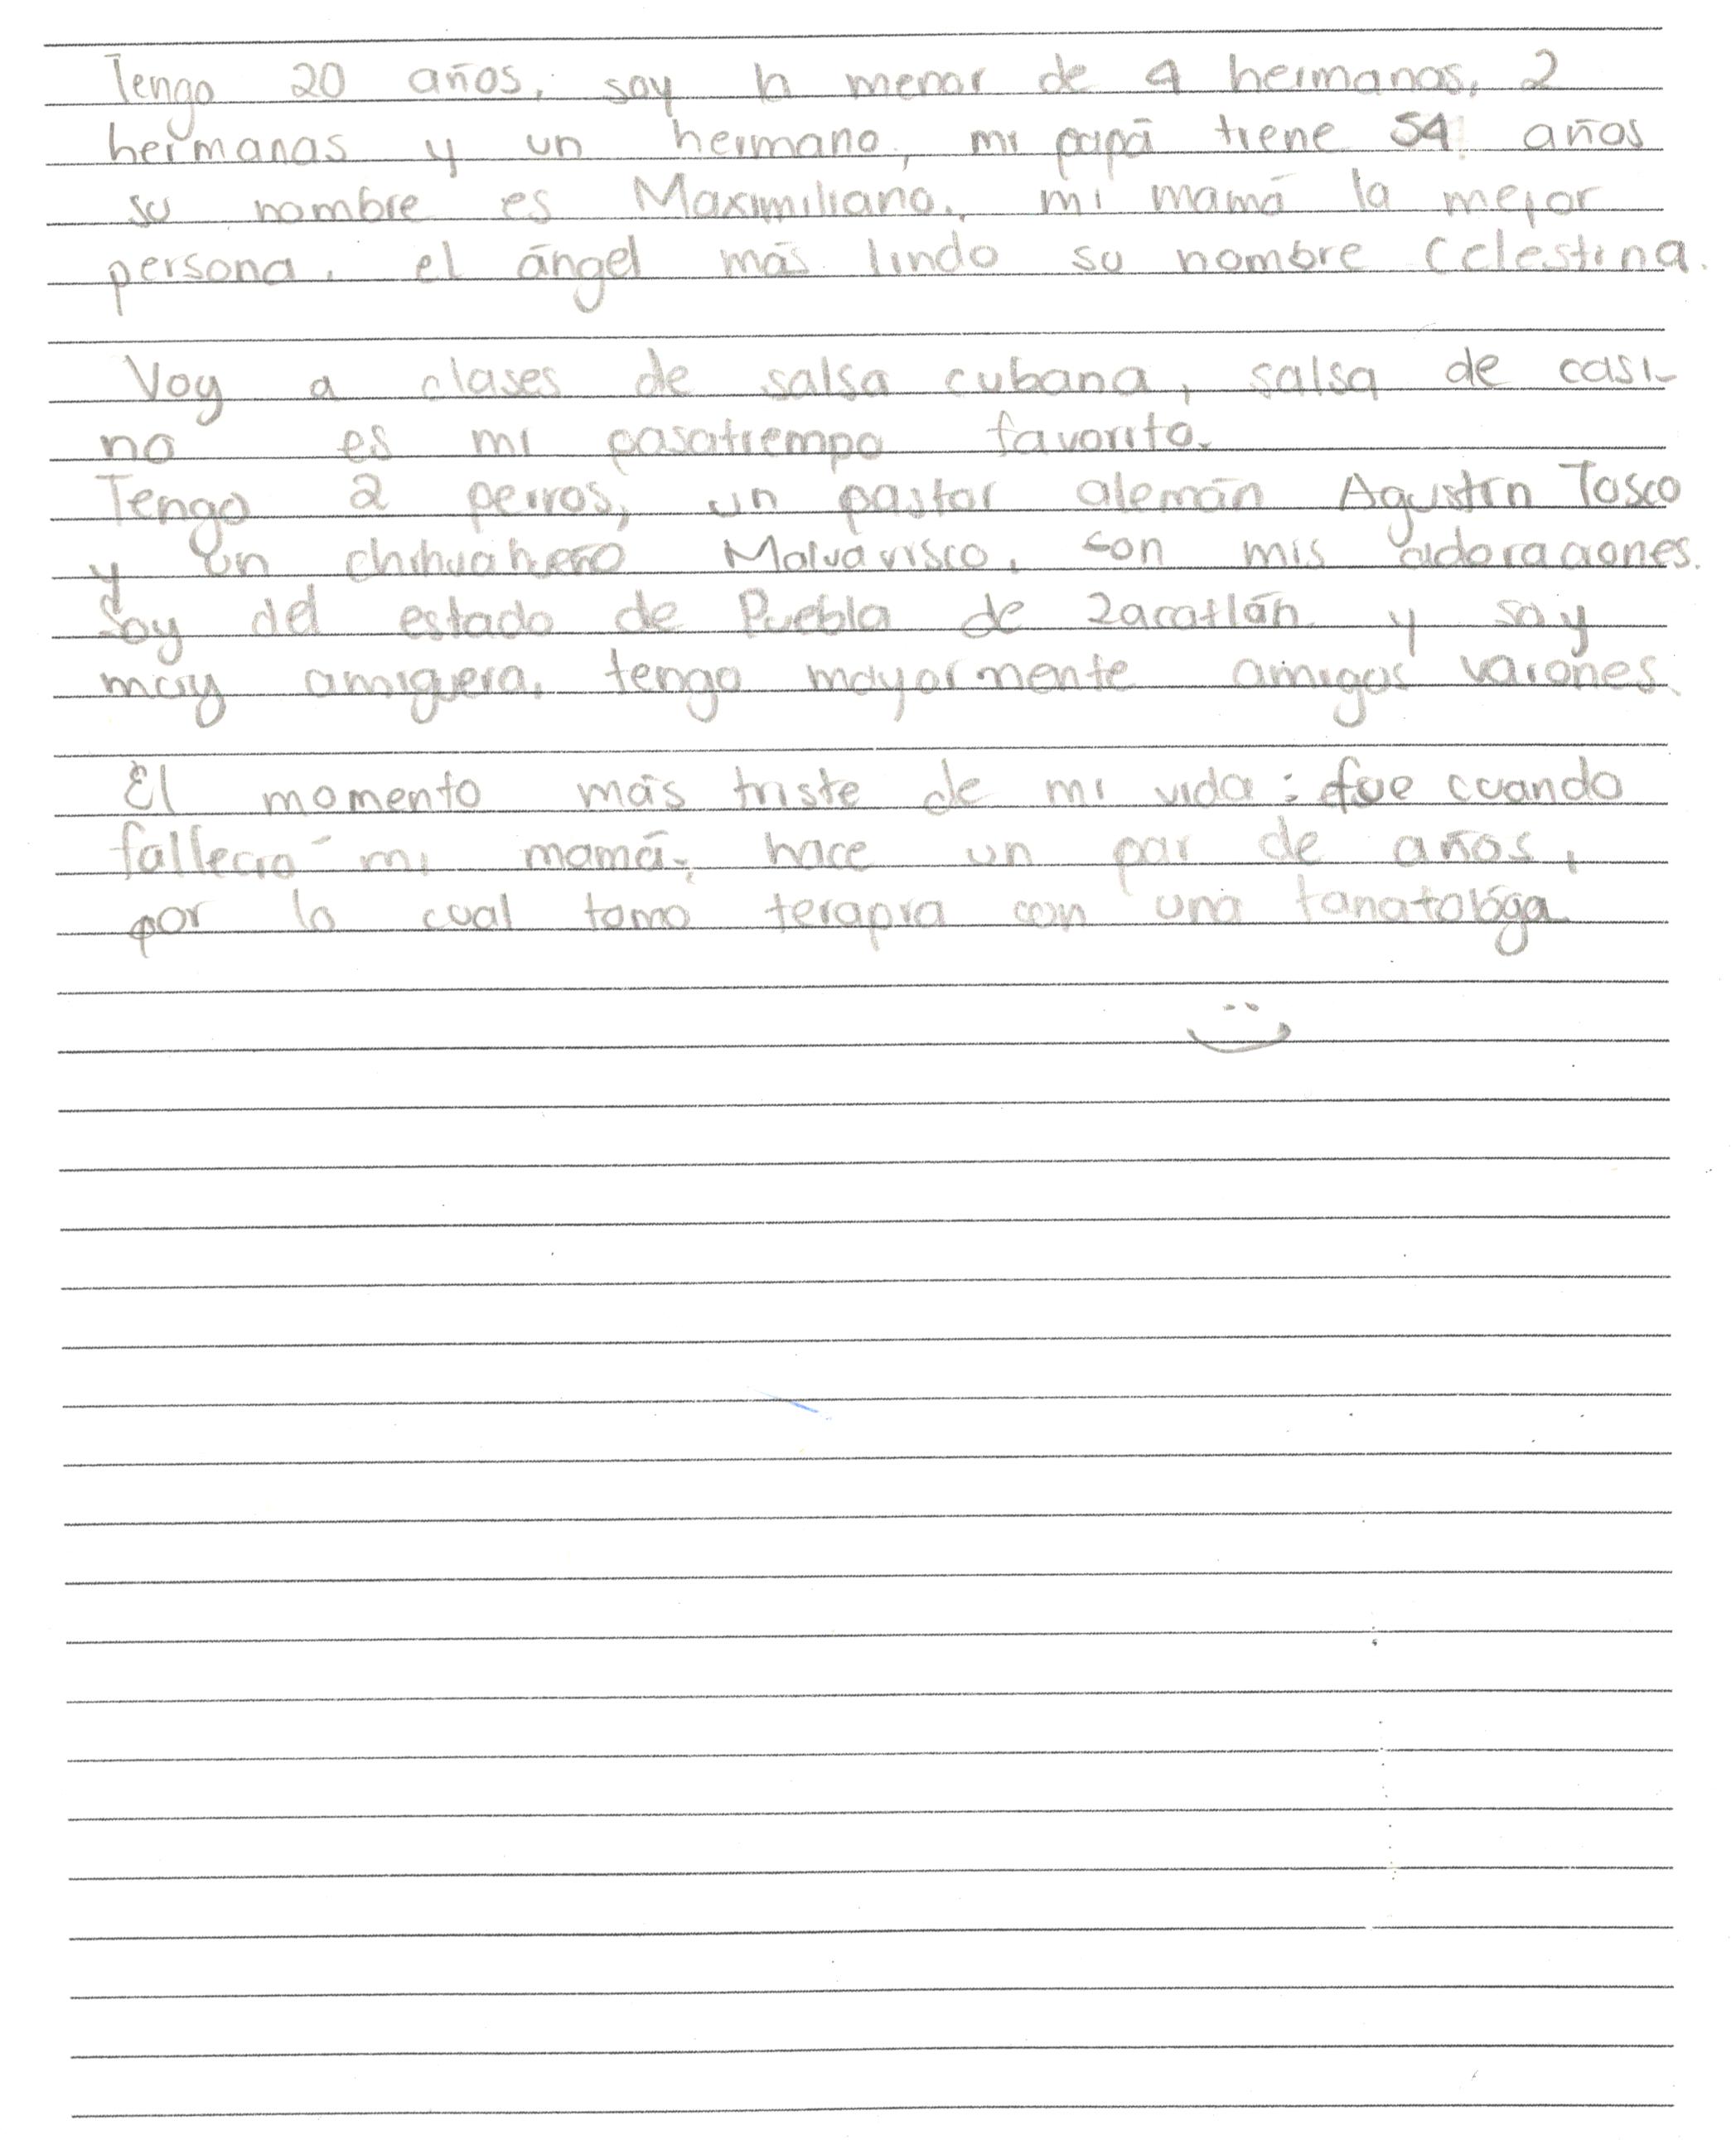 Tengo 20 años, soy la menor de 4 hermanos, 2
hermanas y un hermano, mi papá tiene 54 años
su nombre es Maximiliano, mi mamá la mejor
persona, el ángel más lindo su nombre Celestina.
Voy a clases de salsa cubana, salsa de casi-
no es mi pasatiempo favorito.
Tengo 2 perros, un pastor alemán Agustín Tosco
y un chihuahueño Malvavisco, son mis adoraciones.
Soy del estado de Puebla de Zacatlán y soy
muy amiguera, tengo mayormente amigos varones.
El momento más triste de mi vida: fue cuando
falleció mi mamá, hace un par de años,
por lo cual tomo terapia con una tanatológa